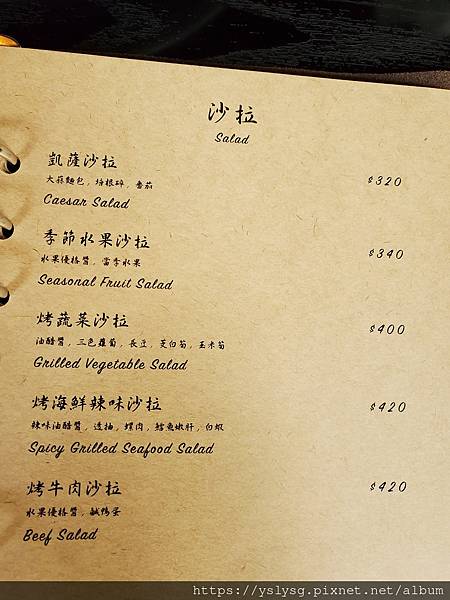 沙拉
Salad
凱薩沙拉
大蒜麵包, 培根碎, 番茄
$320
Caesar Salad
季節水果沙拉
水果優格醬, 當季水果
$340
Seasonal Fruit Salad
烤蔬菜沙拉
油醋醬, 三色蘿蔔, 長豆, 茭白筍, 玉米筍
$400
Grilled Vegetable Salad
烤海鮮辣味沙拉
辣味油醋醬, 透抽, 螺肉, 鱈魚嫩肝, 白蝦
$420
Spicy Grilled Seafood Salad
烤牛肉沙拉
水果優格醬, 鹹鴨蛋
$420
Beef Salad
https://yslysg.pixnet.net/album